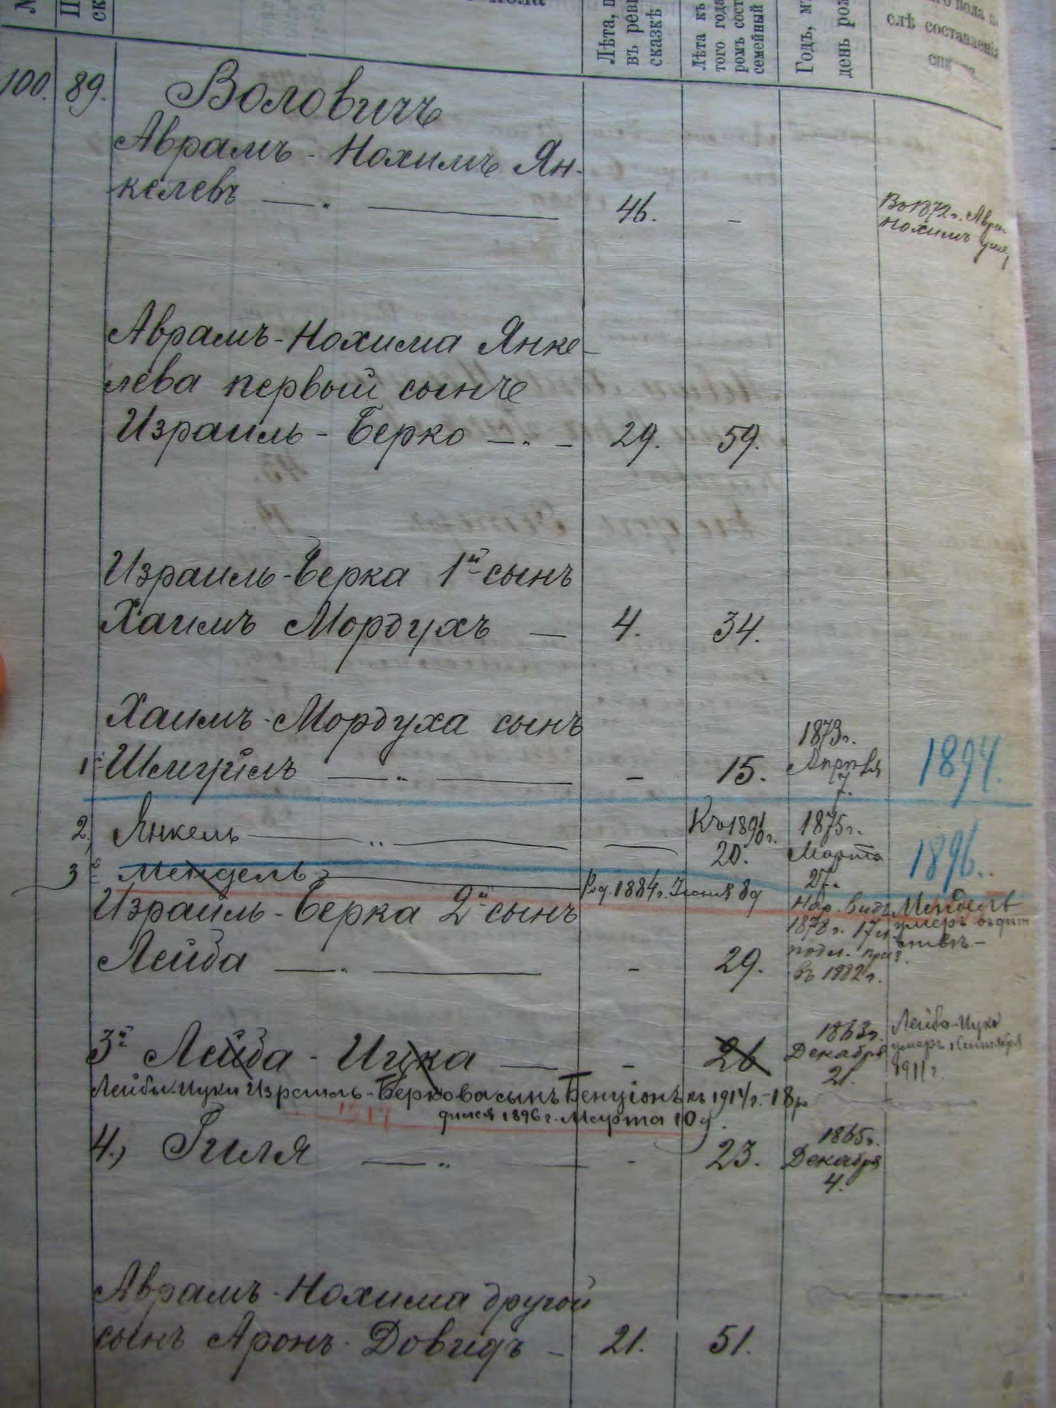 Лѣта,
въ реви
сказкѣ
Лѣта къ
того года
ромъ сост
семейный
Годъ, м
день рож
слѣ составленія
100. 89. Воловичъ
Аврамъ-Нохимъ Ян-
келевъ 46. -
Въ 1872 г. Авра
Нохимъ
Аврамъ-Нохима Янке-
лева первый сынъ
Израиль-Берко 29. 59.
Израиль-Берка 1й сынъ
Хаимъ Мордухъ 4. 34.
Хаимъ-Мордуха сынъ
1. Шмуйлъ - 15. 1873 г. Апрѣля 7. 1894.
2, Янкель - Къ 1896 г. 20. 1875 г. Марта 27. 1896.
3. Мендель Род. 1884 г. Іюня 8 д
Израиль-Берка 2й сынъ
Лейба - 29.
1878 г. 17
въ 1882 г.
Мендель
умеръ
3й Лейба-Ицка - 26 1863 г. Декабря 21.
Лейба-Ицко
умеръ
1911 г.
Лейбы-Ицки Израиль-Беркова сынъ Бенціонъ къ 1914 г. - 18
1914
1896 г. Марта 10 д.
4., Гиля - 23. 1865 г. Декабря 4.
Аврамъ-Нохима другой
сынъ Аронъ-Довидъ - 21. 51.